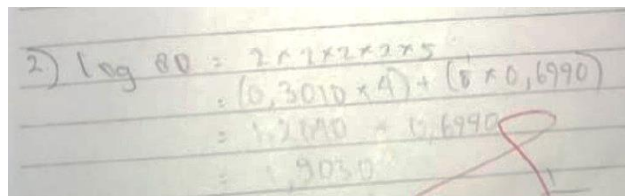 2) log 80 = 2 x 2 x 2 x 2 x 5
= (0,3010 x 4) + ( x 0,6990)
= 1,2040 + 0,6990
= 1,9030